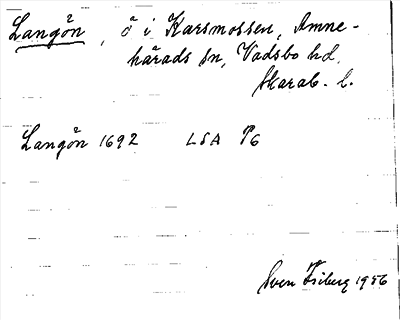 Langön, ö i Karsmossen, Amne-
härads sn, Vadsbo hd.
Skarab. l.
Langön 1692 LSA P6
Sven Friberg 1956